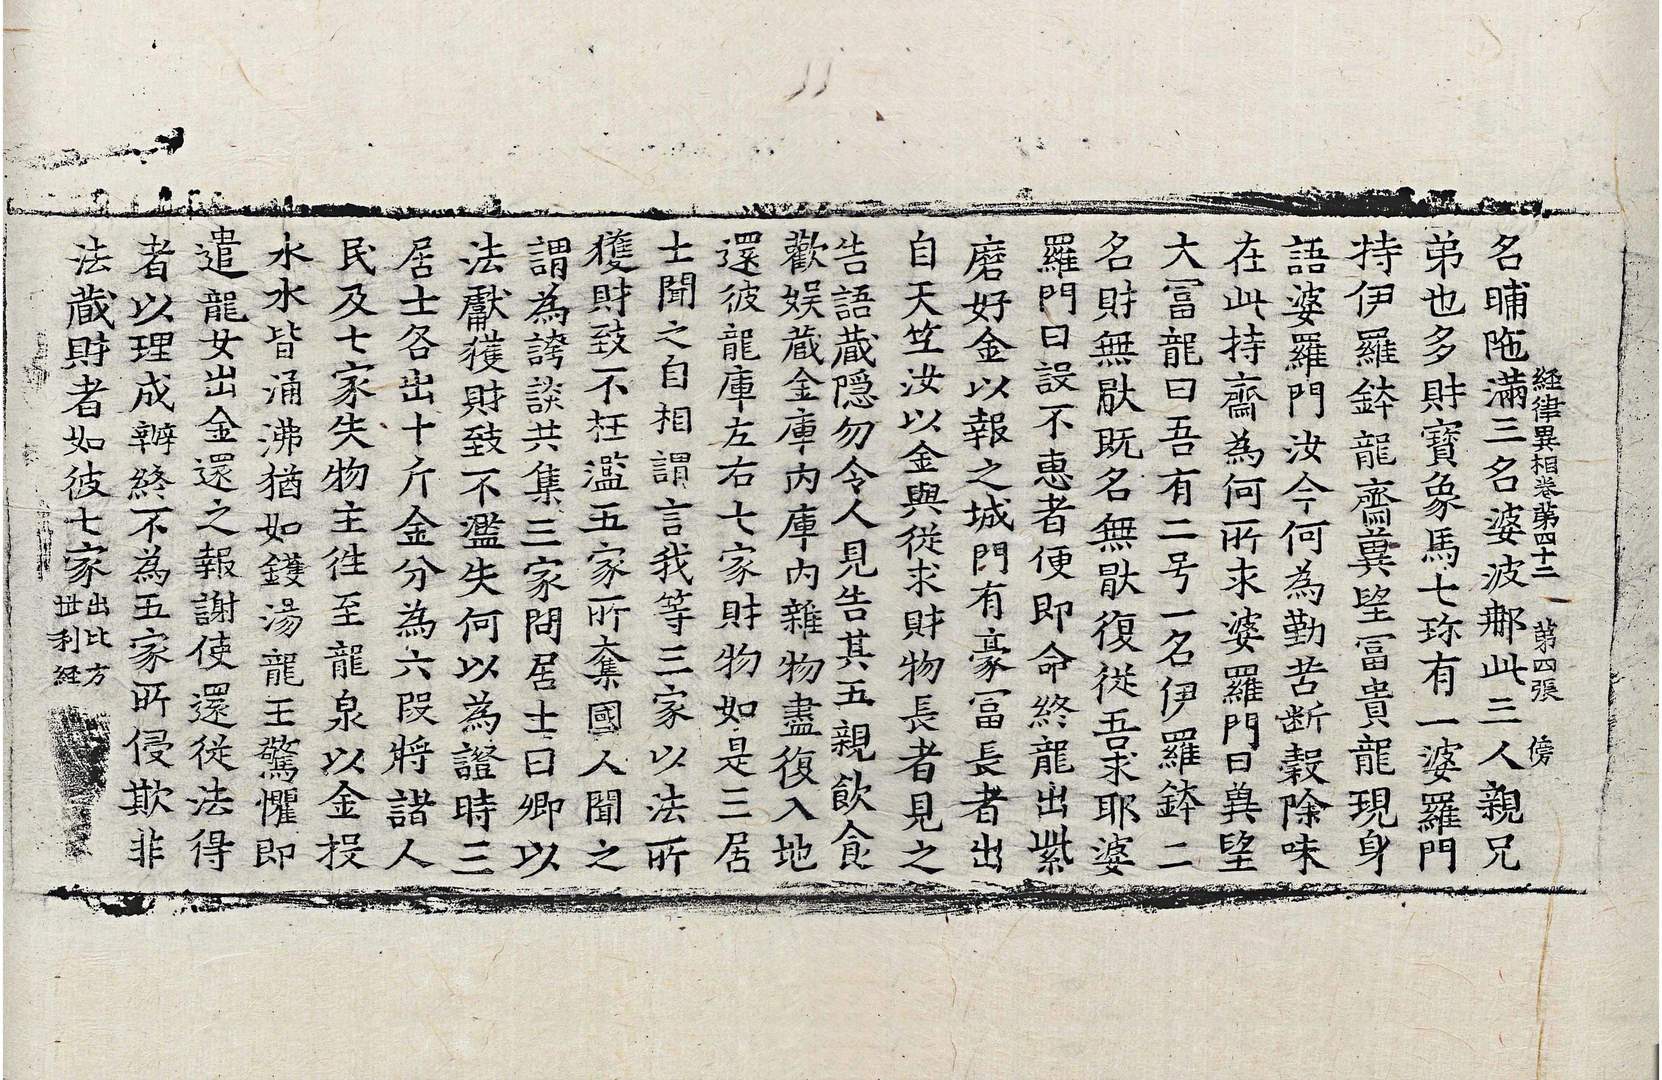 経律異相卷第四十二　第四張　傍
名晡陁滿三名婆波𨚗此三人親兄
弟也多財寶象馬七珎有一婆羅門
持伊羅鉢龍齋兾望冨貴龍現身
語婆羅門汝今何為勤苦断穀除味
在此持齋為何所求婆羅門曰兾望
大冨龍曰吾有二号一名伊羅鉢二
名財無猒既名無猒復従吾求耶婆
羅門曰設不惠者便即命終龍出紫
磨好金以報之城門有豪冨長者出
自天竺汝以金與従求財物長者見之
告語蔵隠勿令人見告其五親飲食
歡娛蔵金庫內庫內雜物盡復入地
還彼龍庫左右七家財物如是三居
士聞之自相謂言我等三家以法所
獲財致不枉濫五家所奪國人聞之
謂為誇談共集三家問居士曰卿以
法獻獲財致不濫失何以為證時三
居士各出十斤金分為六段將諸人
民及七家失物主徃至龍泉以金投
水水皆涌沸猶如鑊湯龍王驚懼即
遣龍女出金還之報謝使還従法得
者以理成辦終不為五家所侵欺非
法蔵財者如彼七家出比方
世利経